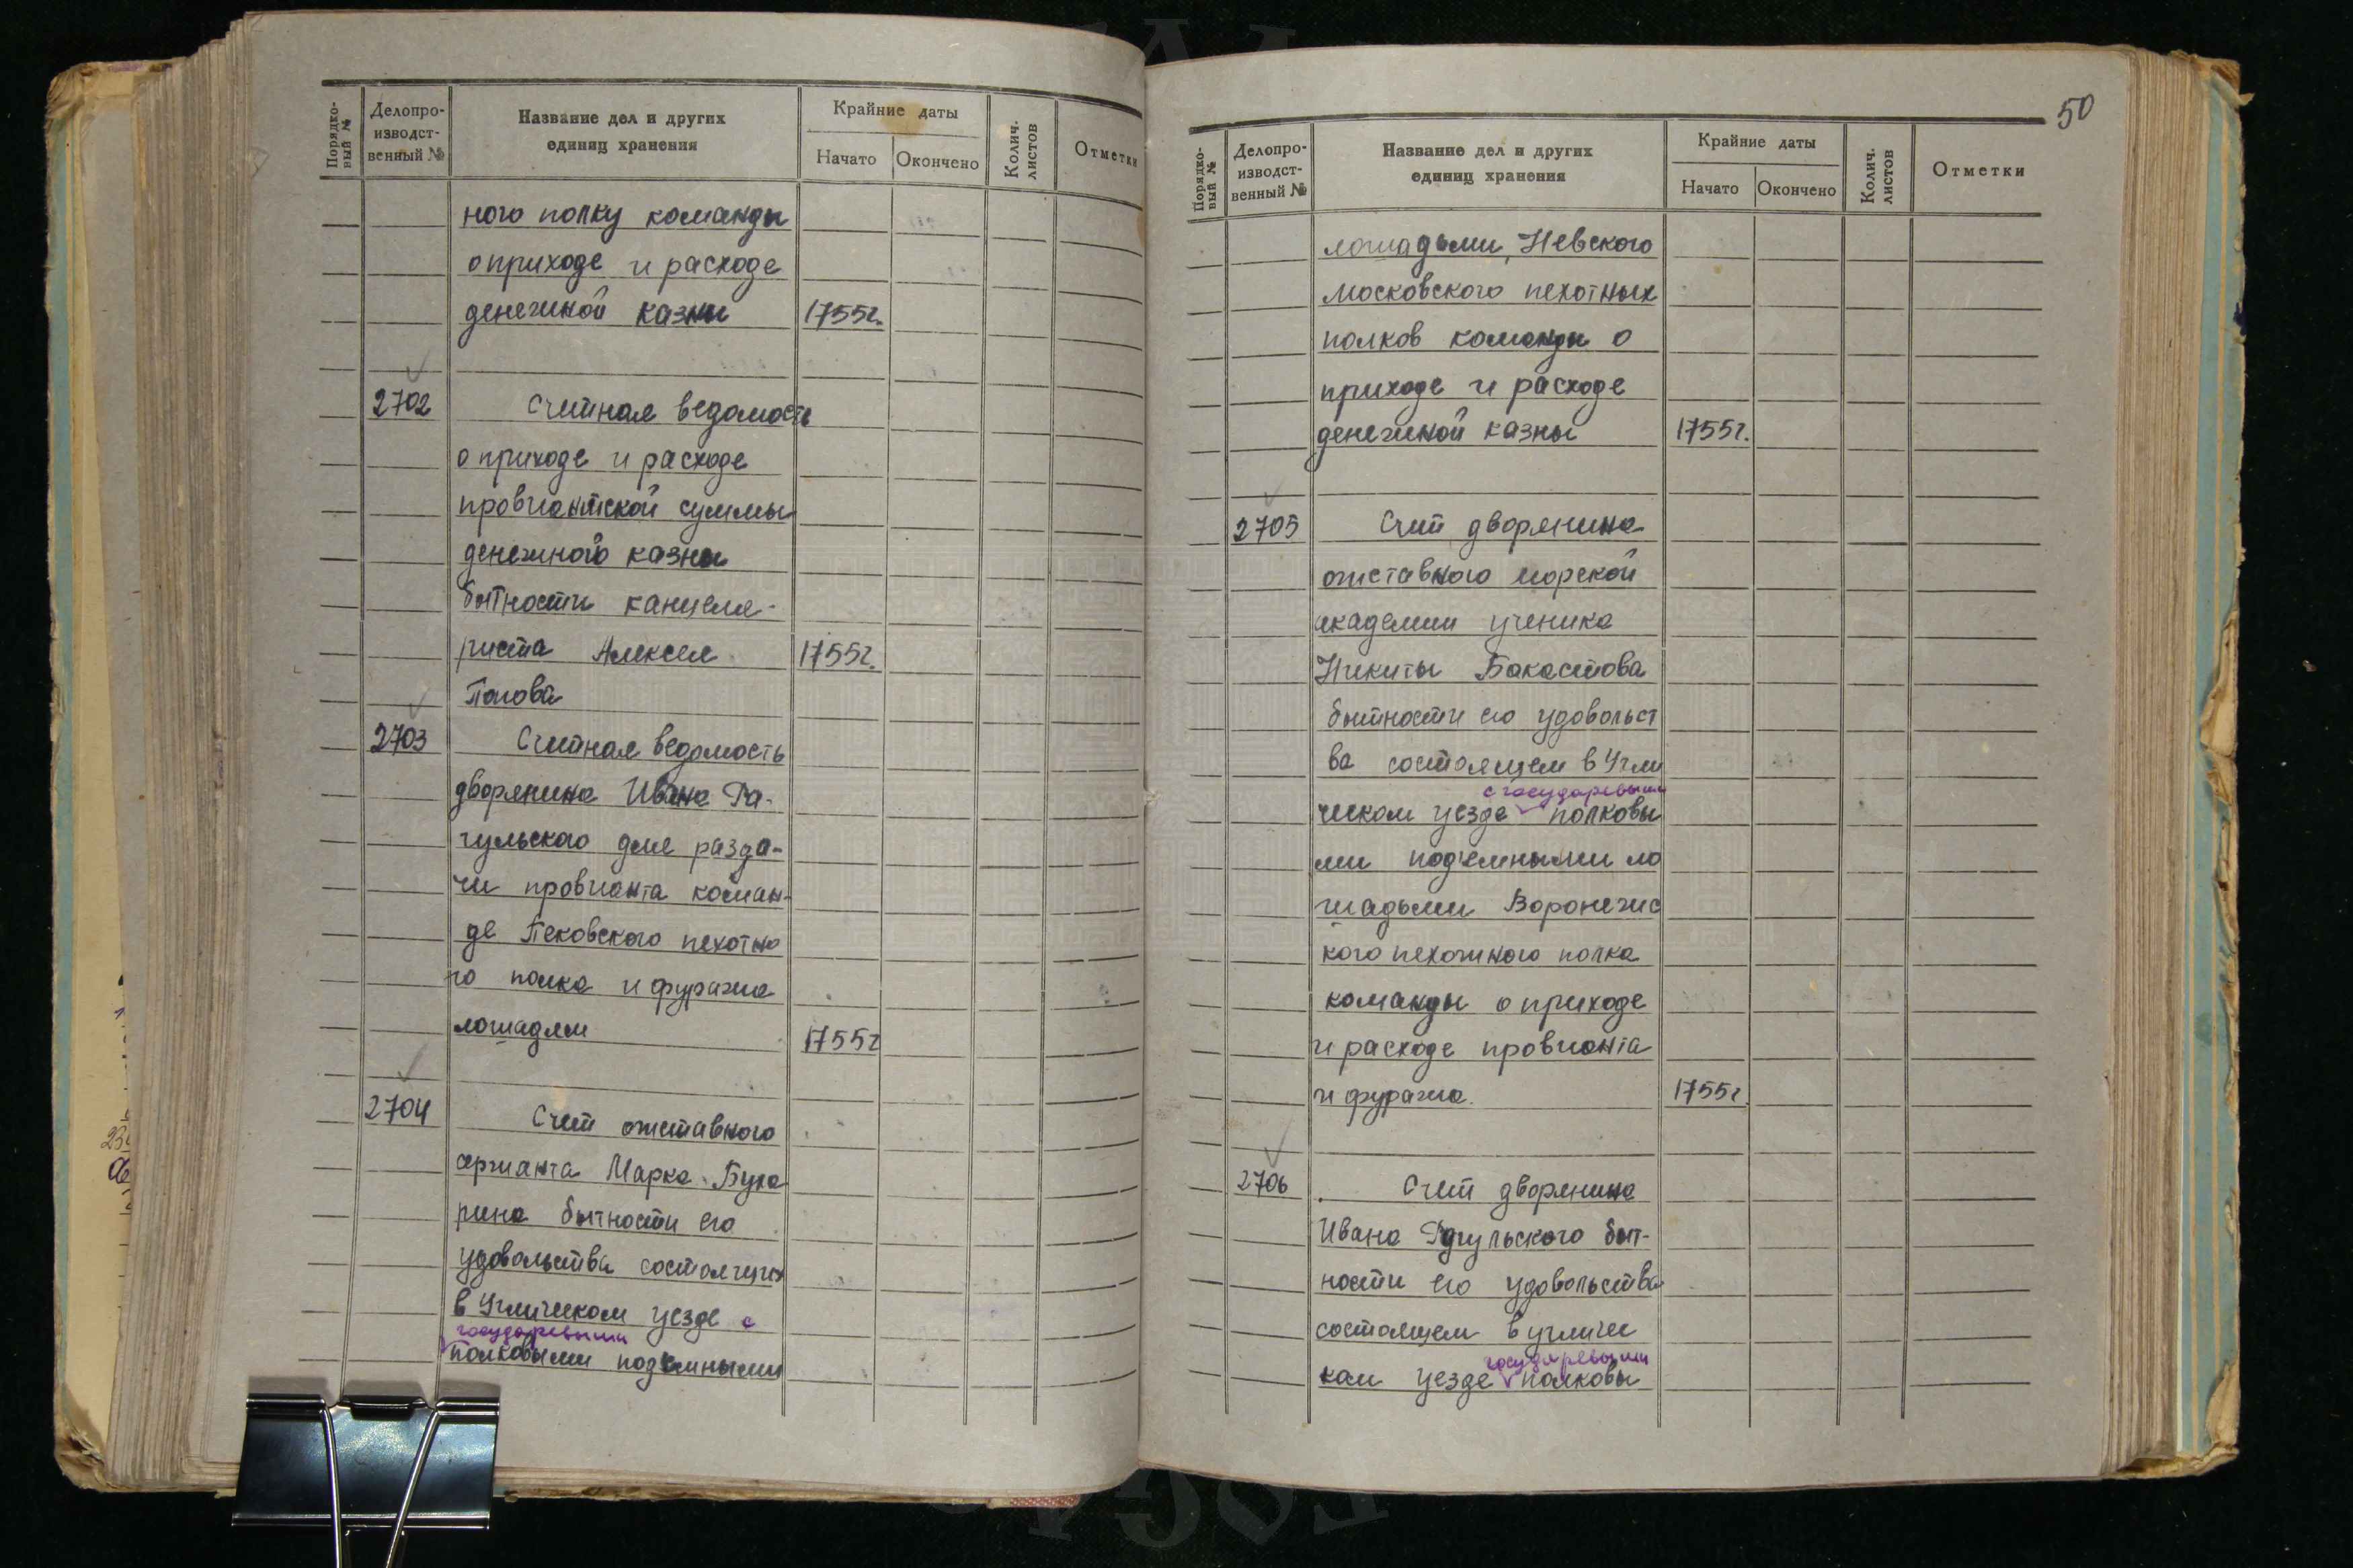 Порядко-
вый №
Делопро-
изводст-
венный №
Название дел и других
единиц хранения
Крайние даты
Начато
Окончено
Колич.
листов
Отметки
ного полку команды
о приходе и расходе
денежной казны 1755г.
2702 Счетная ведомость
о приходе и расходе
провиантской суммы
денежного казны
бытности канцеля-
риста Алексея 1755г.
Попова
2703 Счетная ведомость
дворянина Ивана Ра-
гульского для разда-
чи провианта коман-
де Псковского пехотно
го полка и фуража
лошадям 1755г
2704 Счет отставного
сержанта Марка Буха
рина бытности его
удовольства состоящих
в Угличском уезде с
государевыми
полковыми подъемными
50
Порядко-
вый №
Делопро-
изводст-
венный №
Название дел и других
единиц хранения
Крайние даты
Начато
Окончено
Колич.
листов
Отметки
лошадьми, Невского
Московского пехотных
полков команды о
приходе и расходе
денежной казны 1755г.
2705 Счет дворянина
отставного морской
академии ученика
Никиты Бакастова
бытности его удовольст
ва состоящем в Угли
с государевыми
ческом уезде полковы
ми подъемными ло
шадьми Воронежс
кого пехотного полка
команды о приходе
и расходе провианта
и фуража. 1755г.
2706 Счет дворянина
Ивана Рагульского быт-
ности его удовольства
состоящем в угличес
государевыми
ком уезде полковы